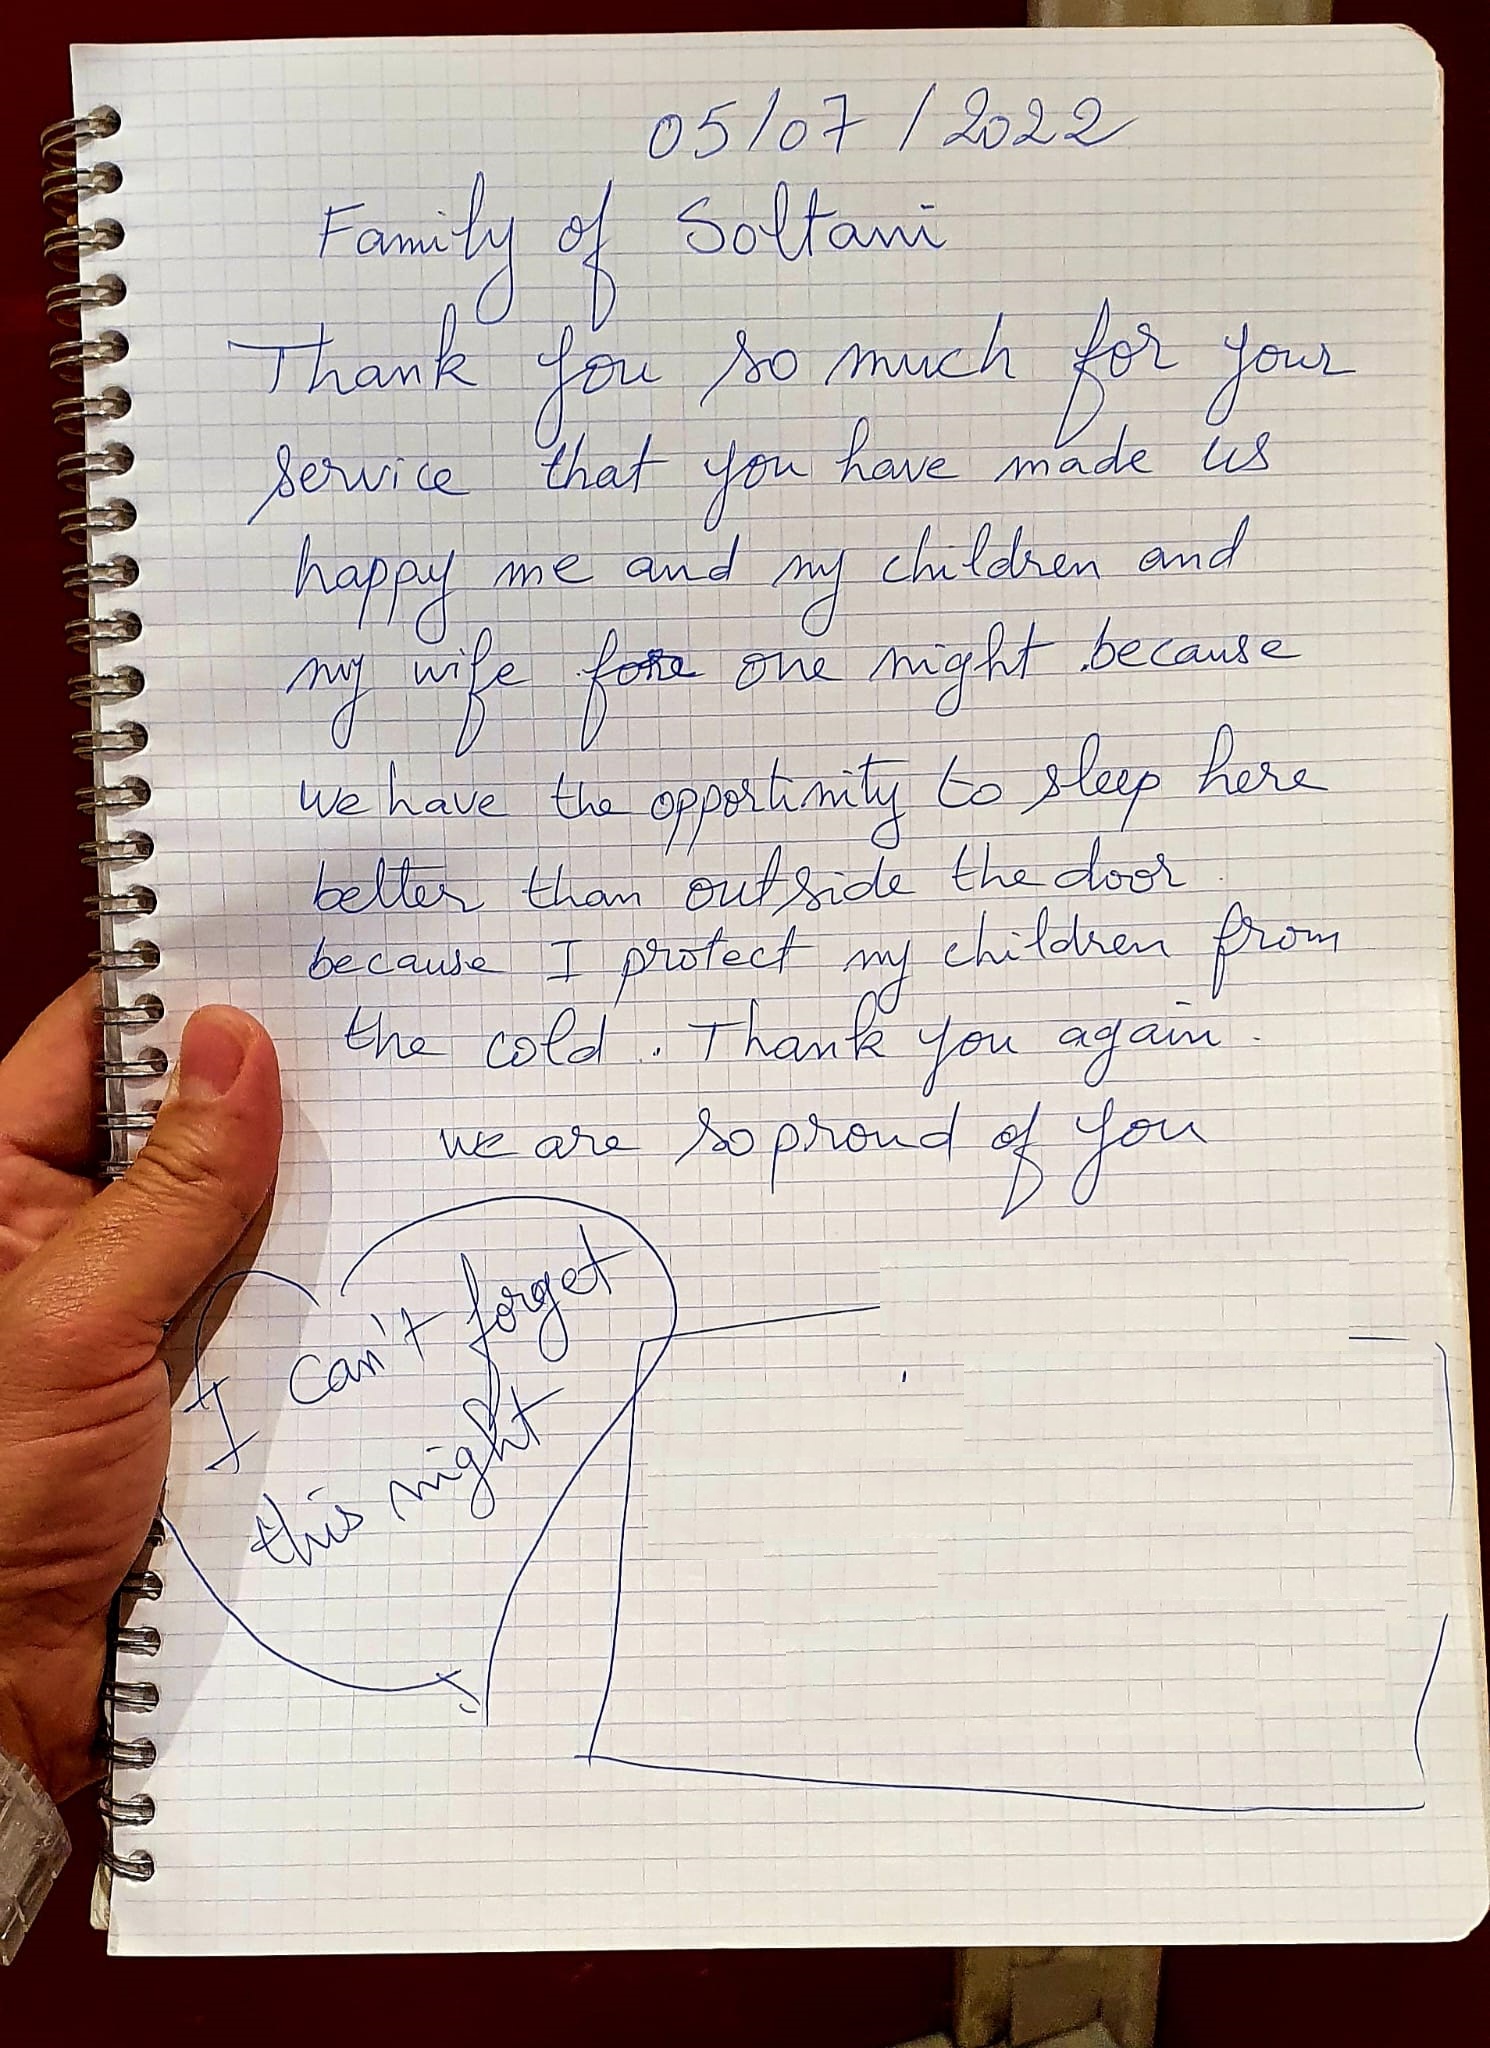 05/07/2022
Family of Soltani
Thank you so much for your
service that you have made us
happy me and my children and
my wife fore one night because
we have the opportinity to sleep here
better than outside the door.
because I protect my children from
the cold. Thank you again.
we are so proud of you
I can't forget
this night